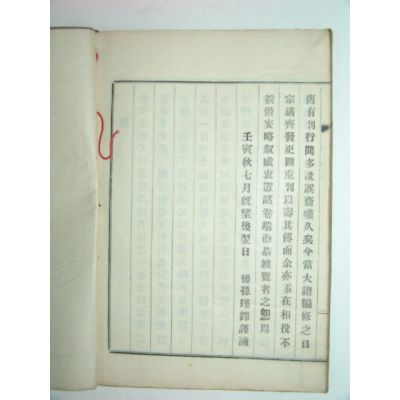 舊有刊行間多訛誤齋嘆久矣今當大譜編修之日
宗議齊發更圖重刊以壽其傳而余亦忝在相役不
揆僭妄略叙感衷置諸卷端而恭竢覽者之恕焉
壬寅秋七月旣望後翌日　後孫瑾鐸謹識